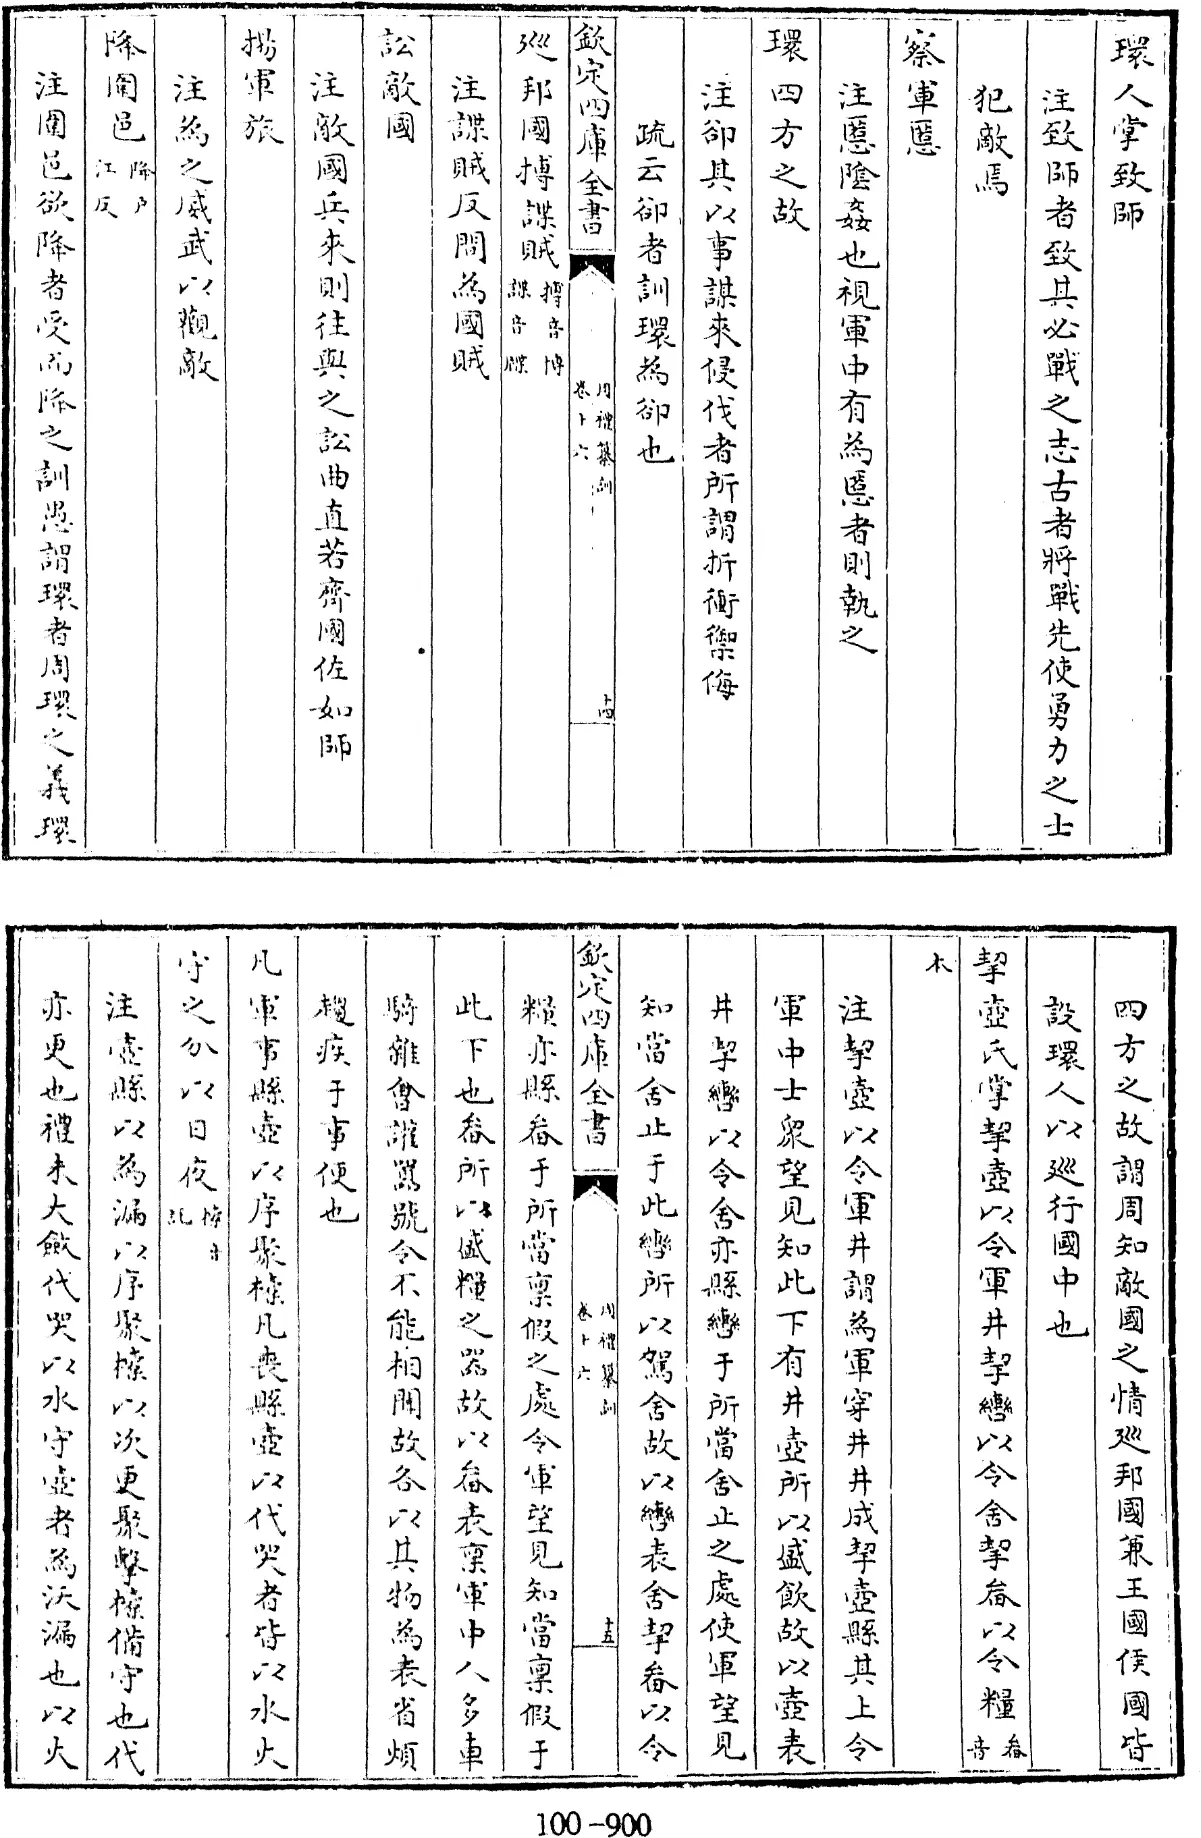 環人掌致師
注致師者致其必戰之志古者將戰先使勇力之士
犯敵焉
察軍慝
注慝隂姦也視軍中有為慝者則執之
環四方之故
注卻其以事謀來侵伐者所謂折衝禦侮
疏云卻者訓環為卻也
欽定四庫全書
周禮纂訓
卷十六
十四
巡邦國搏諜賊搏音博諜音牒
注諜賊反間為國賊
訟敵國
注敵國兵來則往與之訟曲直若齊國佐如師
揚軍旅
注為之威武以觀敵
降圍邑降户江反
注圍邑欲降者受而降之訓愚謂環者周環之義環
四方之故謂周知敵國之情廵邦國兼王國侯國皆
設環人以廵行國中也
挈壺氏掌挈壺以令軍井挈轡以令舍挈畚以令糧畚音
本
注挈壺以令軍井謂為軍穿井井成挈壺縣其上令
軍中士衆望見知此下有井壺所以盛飲故以壺表
井挈轡以令舍亦縣轡于所當舍止之處使軍望見
知當舍止于此轡所以駕舍故以轡表舍挈畚以令
欽定四庫全書
周禮纂訓
卷十六
十五
糧亦縣畚于所當稟假之處令軍望見知當稟假于
此下也畚所以盛糧之器故以畚表稟軍中人多車
騎雜會讙囂號令不能相聞故各以其物為表省煩
趨疾于事便也
凡軍事縣壺以序聚㯓凡喪縣壺以代哭者皆以水火
守之分以日夜㯓音託
注壺縣以為漏以序聚㯓以次更聚擊㯓備守也代
亦更也禮未大斂代哭以水守壺者為沃漏也以火
100-900